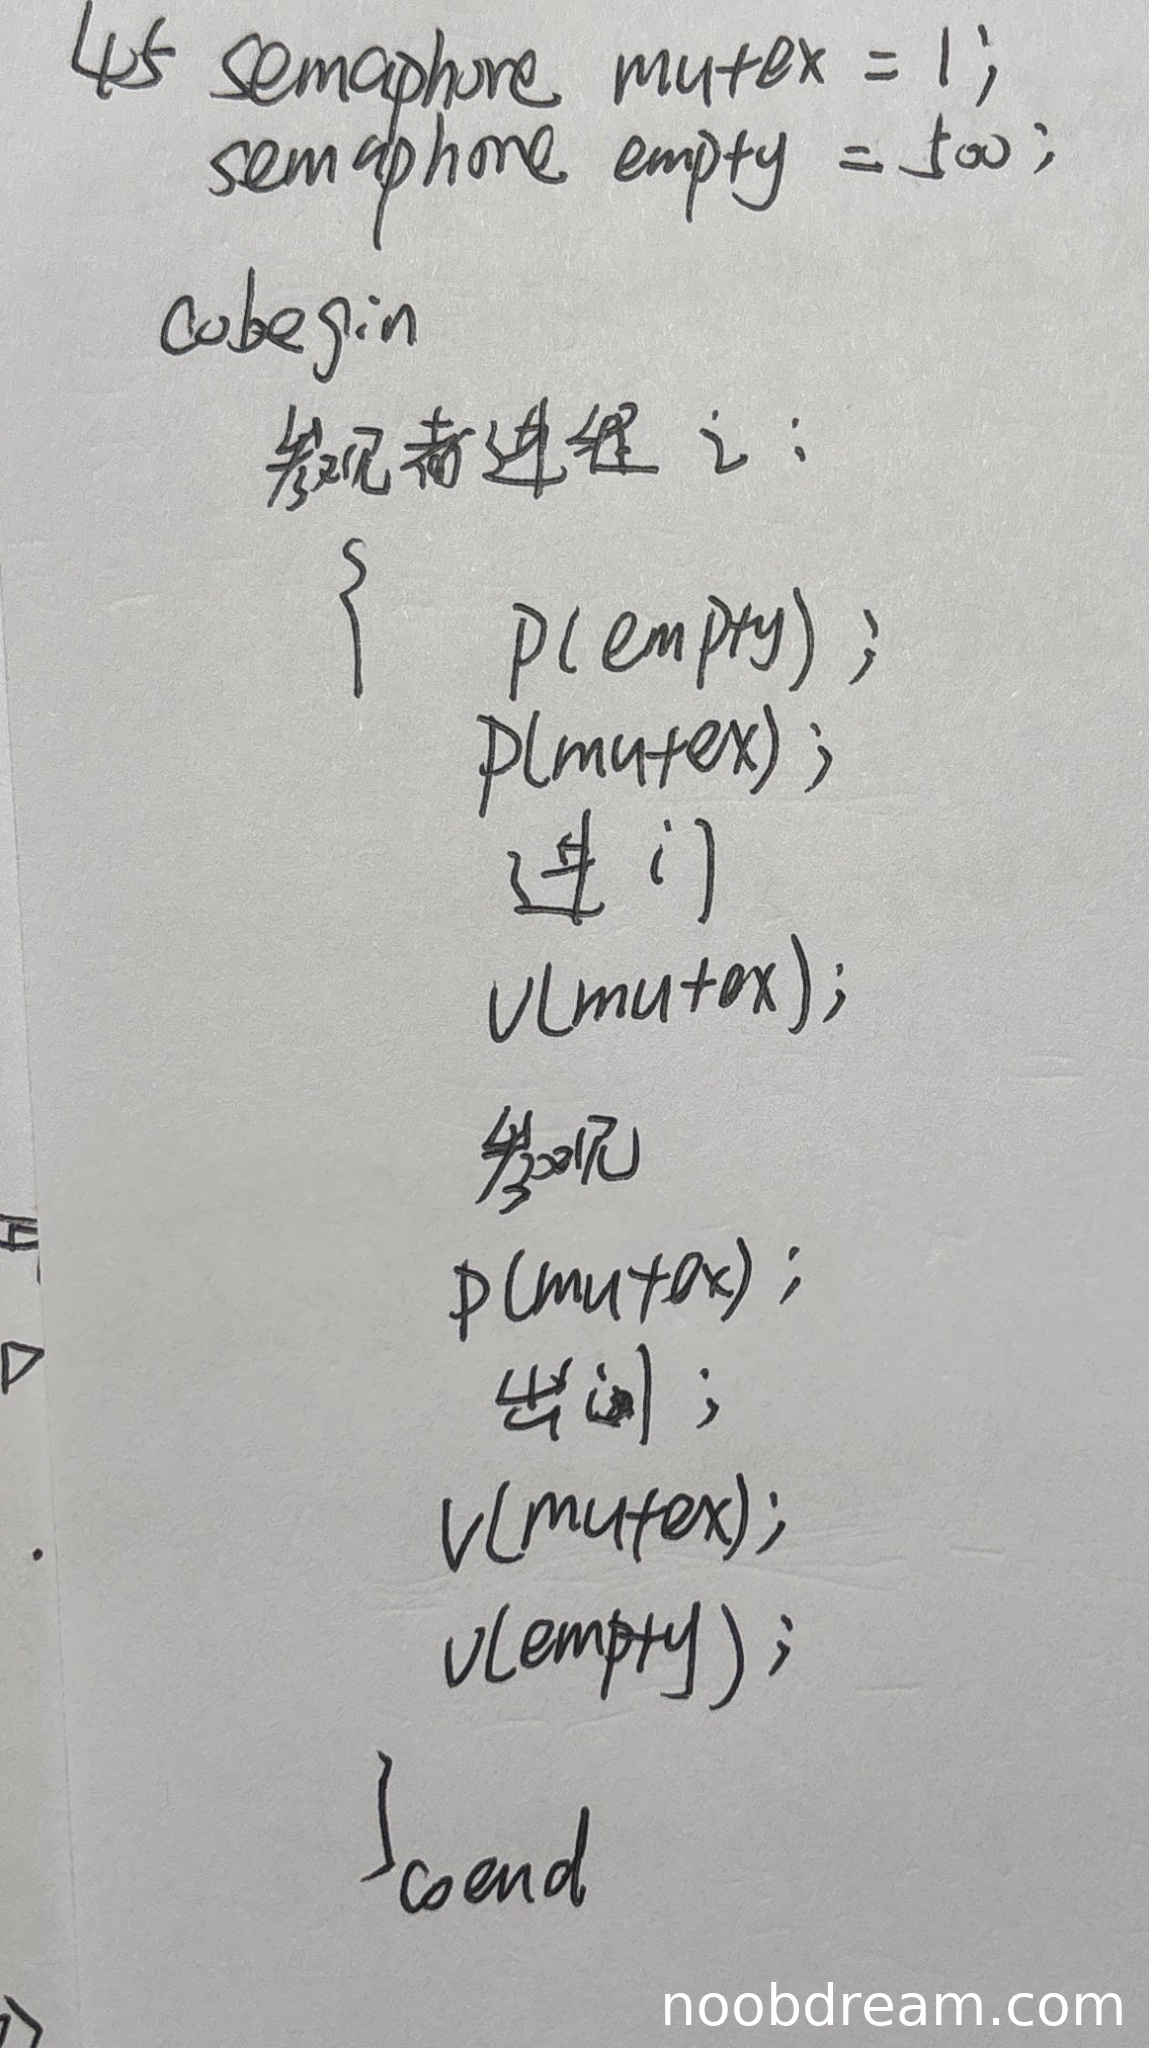 45 semaphore mutex = 1;
semaphore empty = 500;
cobegin
参观者进程 i:
{
p(empty);
p(mutex);
进门
v(mutex);
参观
p(mutex);
出门;
v(mutex);
v(empty);
}
coend
noobdream.com